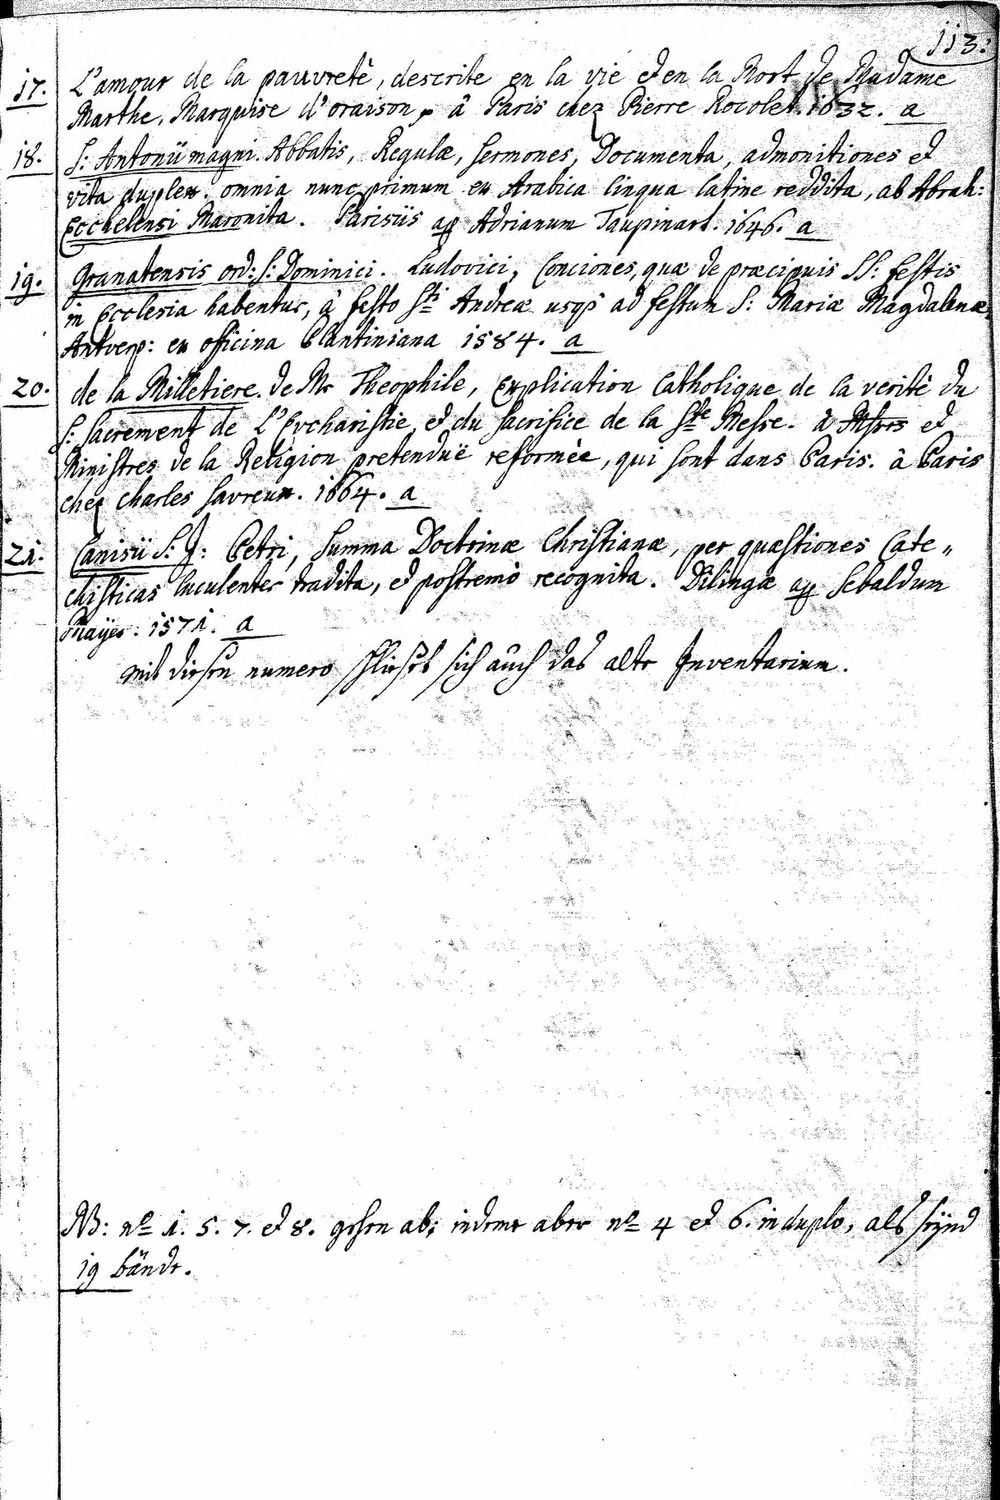 113.
17. L'amour de la pauvretè, descrite en la vie et en la Mort de Madame
Marthe, Marquise d'oraison, à Paris chez Pierre Rocolet. 1632. a
18. S: Antonii magni Abbatis, Regulæ, sermones, Documenta, admonitiones et
vita duplex. omnia nunc primum ex Arabica lingua latine reddita, ab Abrah:
Ecchelensi Maronita. Parisiis ap Adrianum Taupinart. 1646. a
19. Granatensis ord: S: Dominici. Ludovici, Conciones, quæ de præcipuis SS: festis
in Ecclesia habentur, à festo Sti Andreæ usqs ad festum S: Mariæ Magdalenæ.
Antverp: ex officina Plantiniana 1584. a
20. de la Milletiere. de Mr Theophile, Explication Catholique de la veritè du
S: Sacrement de L'Evcharistie, et du sacrifice de la Ste Messe. à Msrs et
Ministres de la Religion pretenduë reformèe, qui sont dans Paris. à Paris
chez Charles Savreux. 1664. a
21. Canisii S: J: Petri, Summa Doctrinæ Christianæ, per quæstiones Cate„
chisticas luculenter tradita, et postremò recognita. Dilingæ ap Sebaldum
Mayer. 1571. a
mit diesen numero schliesst sich auch das alte Inventarium.
NB: no 1. 5. 7. et 8. gehen ab; indeme aber no 4 et 6. in duplo, als seynd
19 bände.